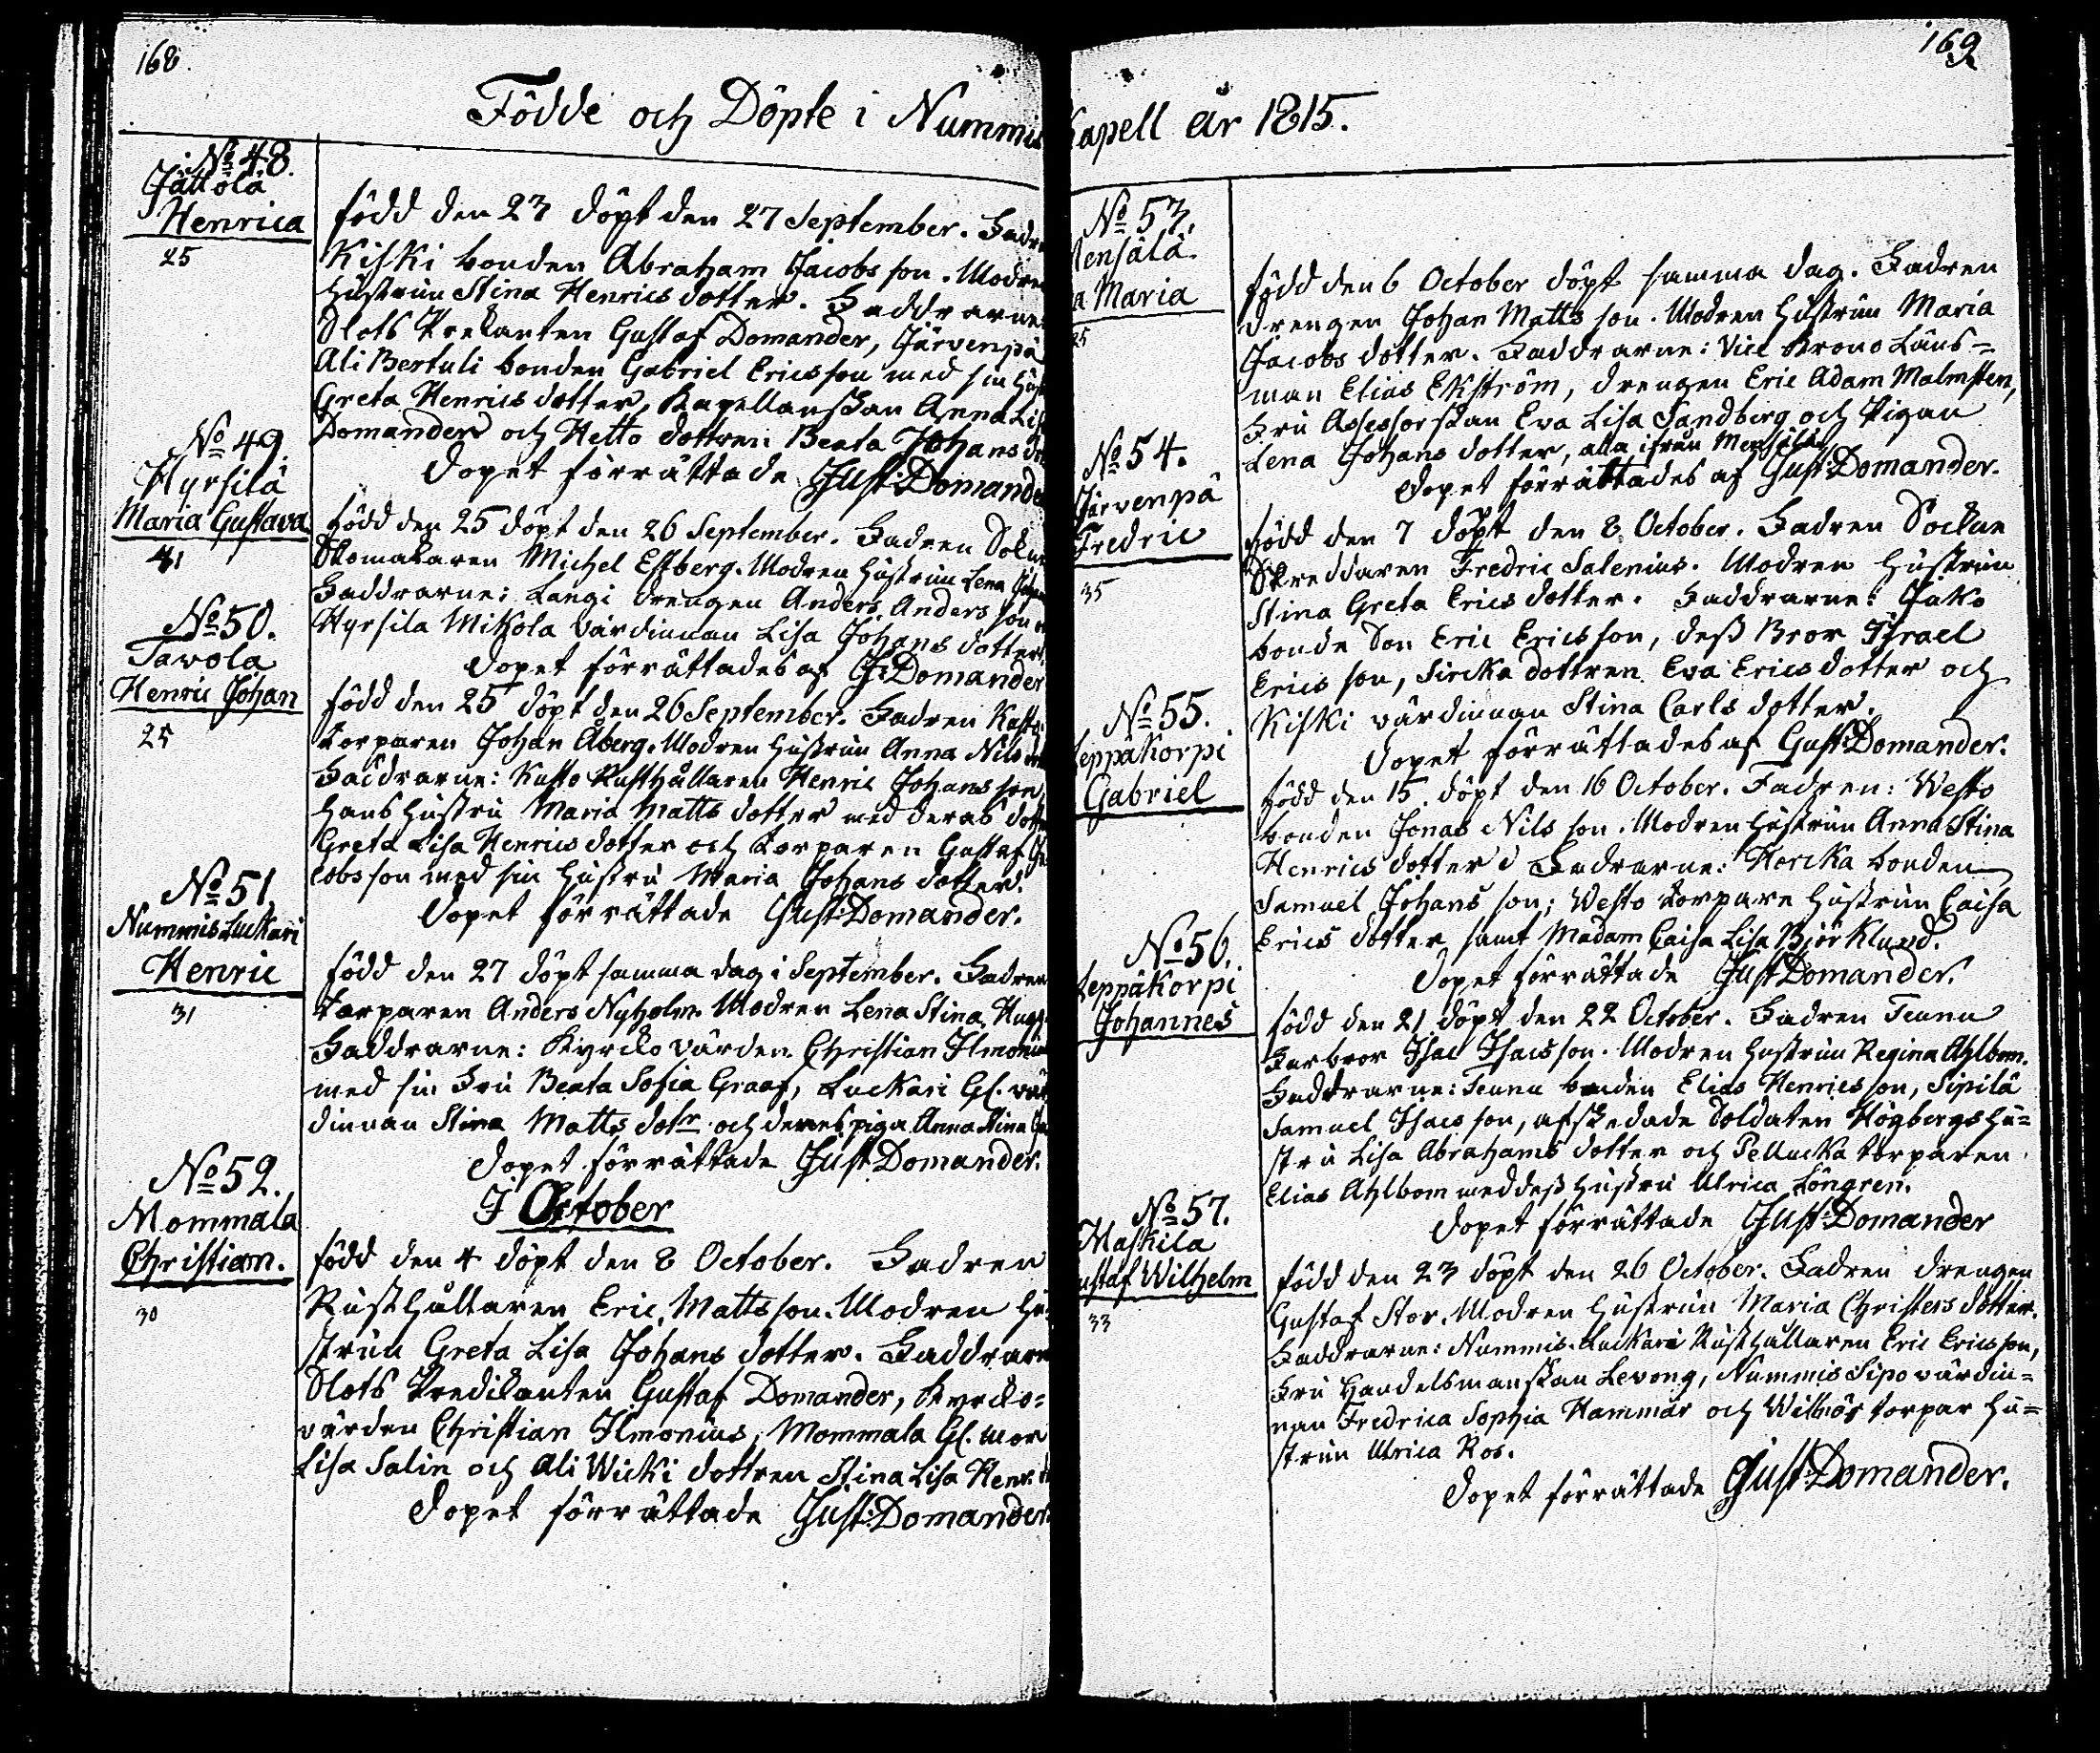 168.
Födde och Döpte i Nummis
No 48.
Jättölä
Henrica
25
född den 23 döpt den 27 September. Fadren
Kiski bonden Abraham Jacobs son. Modren
hustrun Stina Henrics dotter. Faddrarne
Slots Predikanten Gustaf Domander, Järvenpä
Ali Bertuli bonden Gabriel Ericsson med sin
Greta Henrics dotter, Kapellanskan Anna
Domander och Hetto dottren Beata Johans
dopet förrättade Gust: Domander
No 49.
Hyrsilä
Maria Gustava
41
född den 25 döpt den 26 September. Fadren
Skomakaren Michel Estberg. Modren hustrun Lena
Faddrarne: Langi drengen Anders Anders son
Hyrsila Mikola värdinnan Lisa Johans dotter.
dopet förrättades af G: Domander
No 50.
Tavola
Henric Johan
25
född den 25 döpt den 26 September. Fadren
torparen Johan Åberg. Modren hustrun Anna Nils
Faddrarne: Kusto Rusthållaren Henric Johans son
hans hustru Maria Matts dotter med deras
Greta Lisa Henrics dotter och torparen Gustaf
cobs son med sin hustru Maria Johans dotter.
dopet förrättade Gust: Domander.
No 51.
Nummis Luckari
Henric
31
född den 27 döpt samma dag i September. Fadren
torparen Anders Nyholm. Modren Lena Stina
Faddrarne: Kyrcko värden Christian Ilmonius
med sin Fru Beata Sofia Graaf, Luckari Gl. vär
dinnan Stina Matts dotr och deras piga Anna Stina
dopet förrättade Gust: Domander.
I October
No 52.
Mommala
Christian.
30
född den 4 döpt den 8 October. Fadren
Rusthållaren Eric Matts son. Modren hu
strun Greta Lisa Johans dotter. Faddrarne
Slots Predikanten Gustaf Domander, Kyrcko=
värden Christian Ilmonius, Mommala Gl. mor
Lisa Salin och Ali Wicki dottren Stina Lisa Henr.
dopet förrättade Gust: Domander.
169.
Kapell år 1815.
No 53.
ensälä.
a Maria
25
född den 6 October döpt samma dag. Fadren
drengen Johan Matts son. Modren hustrun Maria
Jacobs dotter. Faddrarne: Vice Krono Läns=
man Elias Ekström, drengen Eric Adam Malmsten,
Fru Assessorskan Eva Lisa Sandberg och Pigan
Lena Johans dotter, alla ifrån Mensälä
dopet förrättades af Gust: Domander.
No 54.
Järvenpä
Fredric
35
född den 7 döpt den 8 October. Fadren Sockne
Skreddaren Fredric Salenius. Modren hustrun
Stina Greta Erics dotter. Faddrarne: Jako
bonde Son Eric Ericsson, dess Bror Israel
Erics son, Sircka dottren Eva Erics dotter och
Kiski värdinnan Stina Carls dotter.
dopet förrättades af Gust: Domander.
No 55.
Leppäkorpi
Gabriel
född den 15. döpt den 16 October. Fadren: Westo
bonden Jonas Nils son. Modren hustrun Anna Stina
Henrics dotter. Fadrarne: Hercka bonden
Samuel Johans son; Westo torpare hustrun Caisa
Erics dotter samt Madam Caisa Lisa Björklund.
dopet förrättade Gust: Domander.
No 56.
Leppäkorpi
Johannes
född den 21 döpt den 22 October. Fadren Teunu
Farbror Isac Isacsson. Modren hustrun Regina Ahlbom.
Faddrarne: Teunu bonden Elias Henricsson, Sipilä
Samuel Isacs son, afskedade Soldaten Högbergs hu=
stru Lisa Abrahams dotter och Pellucka torparen
Elias Ahlbom med dess hustru Ulrica Löngren.
dopet förrättade Gust: Domander
No 57.
Maskila
Gustaf Wilhelm
33
född den 23 döpt den 26 October. Fadren drengen
Gustaf Stor. Modren hustrun Maria Christers dotter.
Faddrarne: Nummis Luckari Rusthållaren Eric Ericsson,
Fru Handelsmanskan Levong, Nummis Sipo värdin=
nan Fredrica Sophia Hammar och torpar hu=
strun Ulrica Ros.
dopet förrättade Gust: Domander.